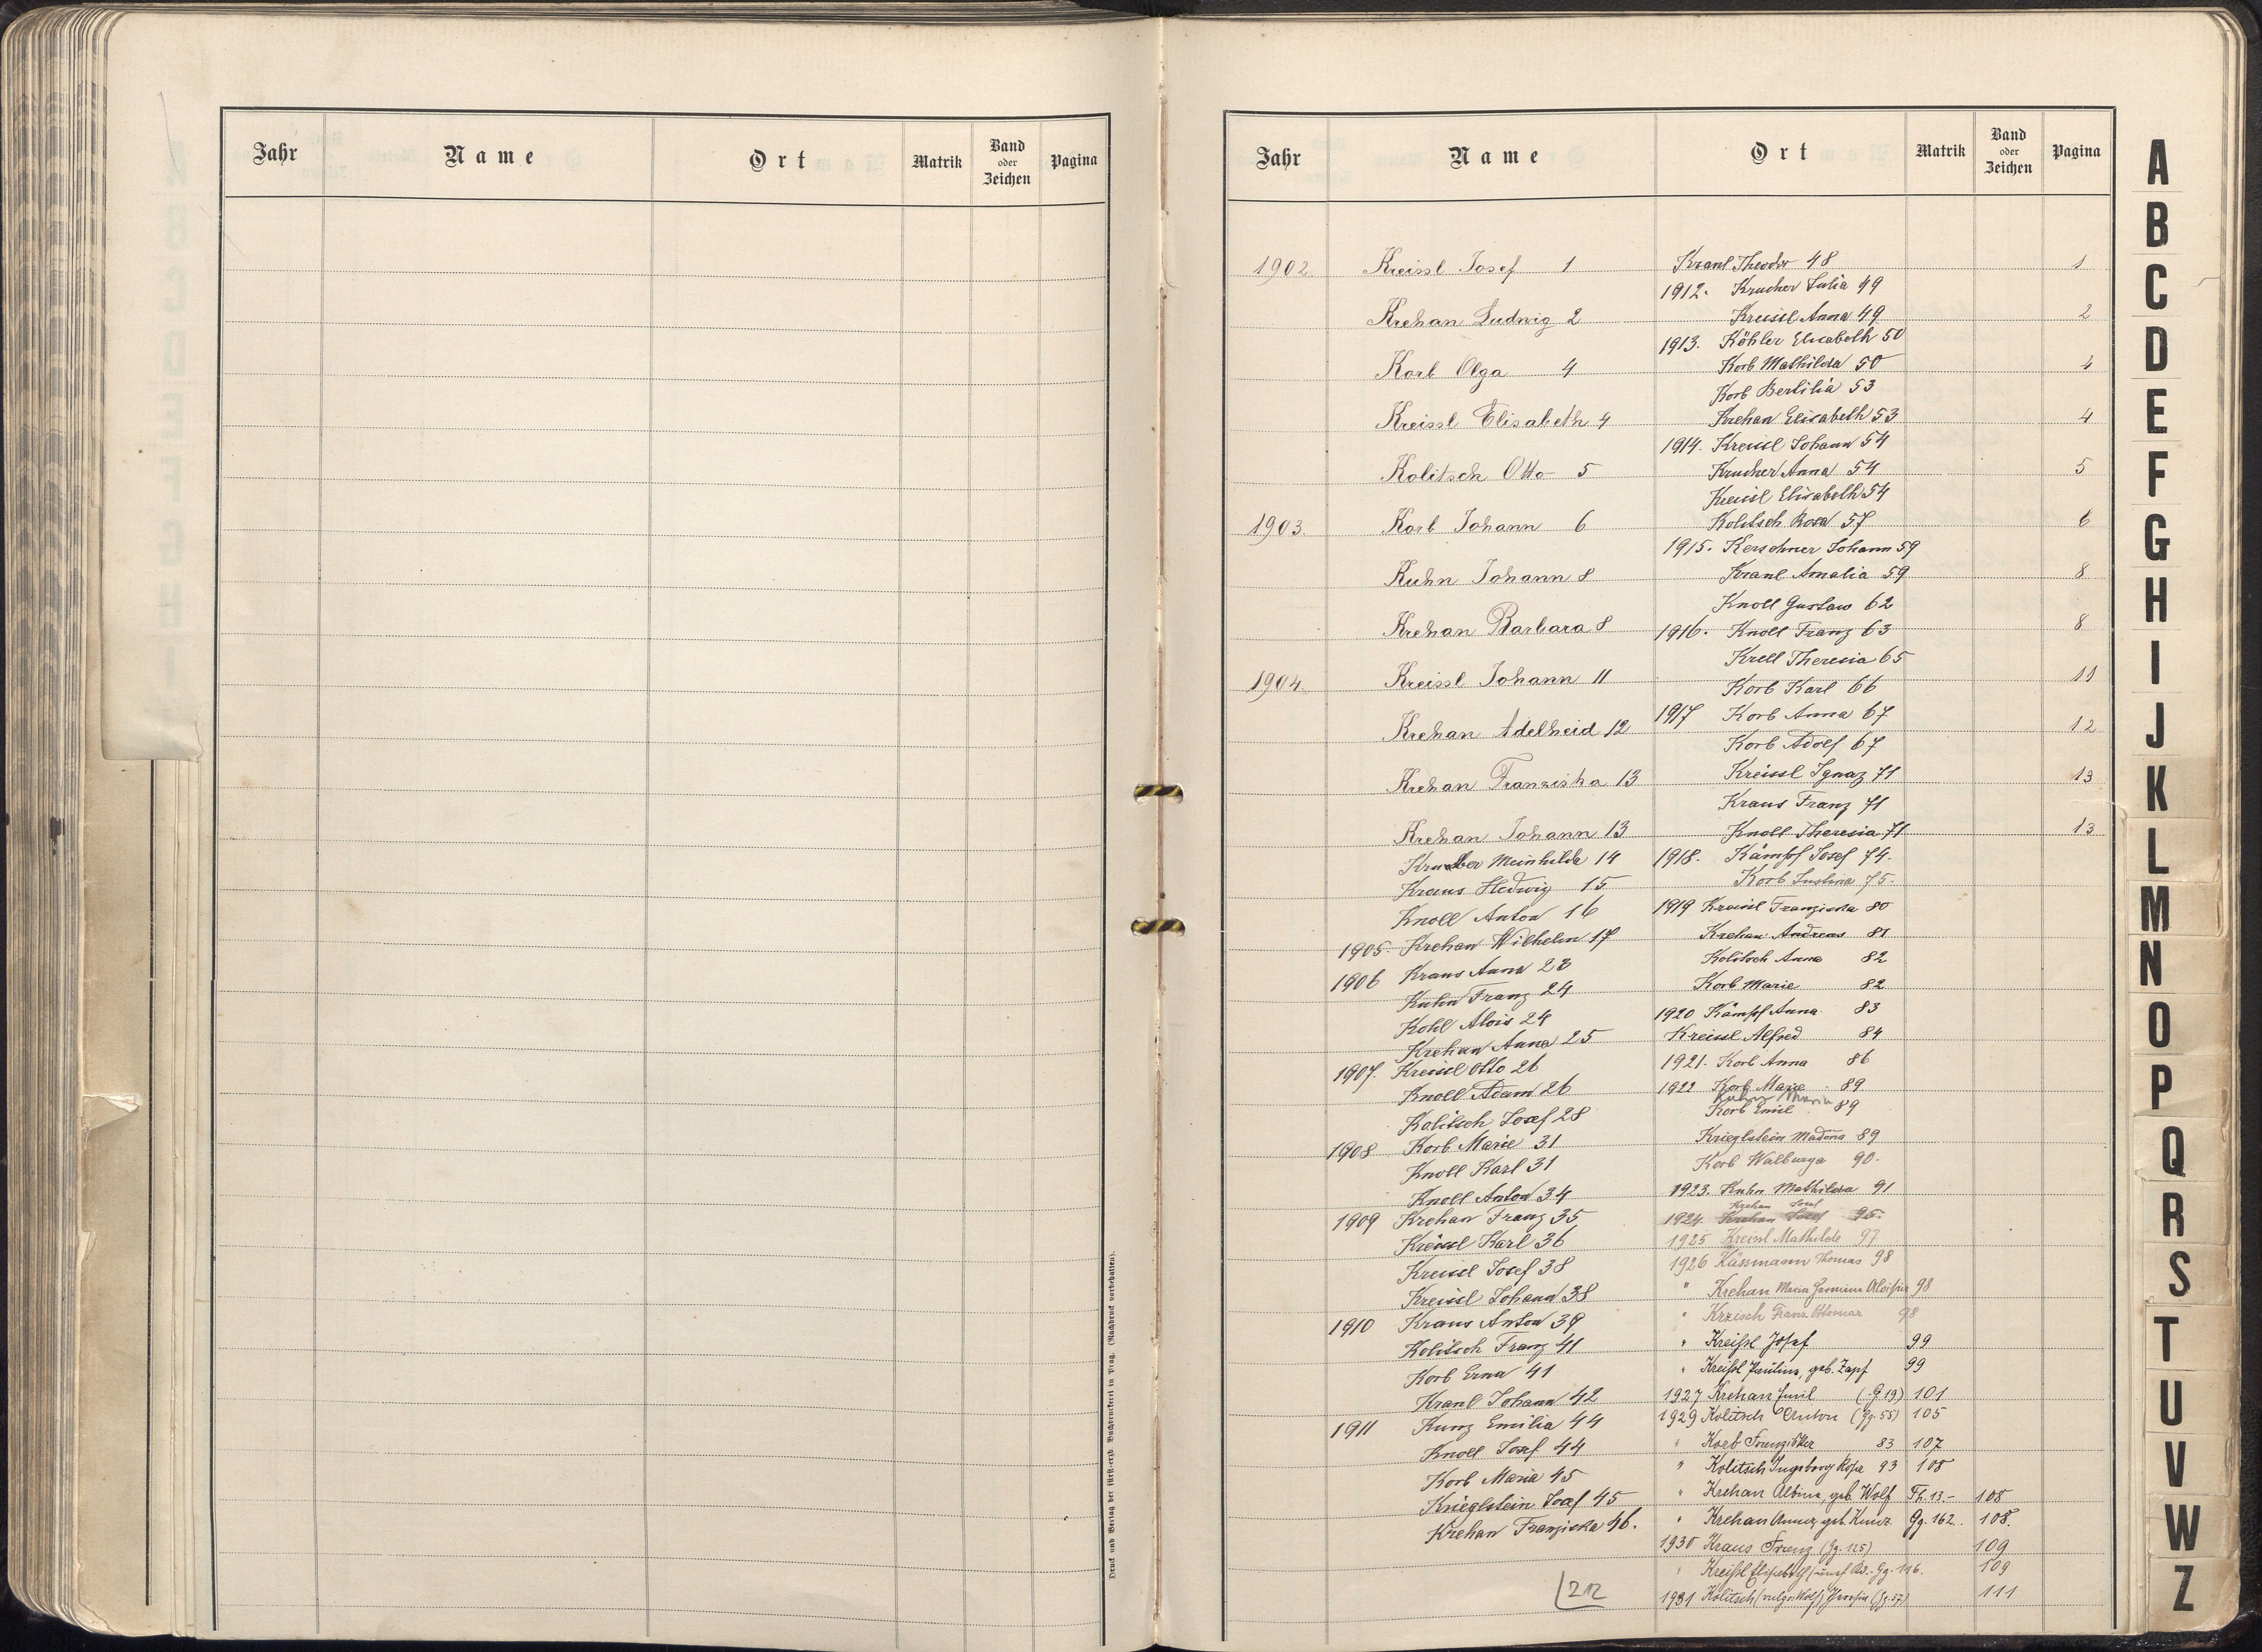 Jahr Name Ort Matrik Band oder Zeichen Pagina
Druck und Verlag der fürst-erzb. Buchdruckerei in Prag. (Nachdruck vorbehalten).
Jahr Name Ort Matrik Band oder Zeichen Pagina
1902 Kreissl Josef 1
Krehan Ludwig 2
Korb Olga 4
Kreissl Elisabeth 4
Kolitsch Otto 5
1903. Korb Johann 6
Kuhn Johann 8
Krehan Barbara 8
1904. Kreissl Johann 11
Krehan Adelheid 12
Krehan Franziska 13
Krehan Johann 13
Meinhilda 14
Kraus Hedwig 15
Knoll Anton 16
1905. Krehan Wilhelm 17
1906 Kraus Anna 23
Kuhn Franz 24
Kohl Alois 24
Krehan Anna 25
1907. Kreissl Otto 26
Knoll Adam 26
Kolitsch Josef 28
1908 Korb Marie 31
Knoll Karl 31
Knoll Anton 34
1909 Krehan Franz 35
Kreissl Karl 36
Kreissl Josef 38
Kreissl Johann 38
1910 Kraus Anton 39
Kolitsch Franz 41
Korb Erna 41
Kranl Johann 42
1911 Kunz Emilia 44
Knoll Josef 44
Korb Maria 45
Krieglstein Josef 45
Krehan Franziska 46.
212
Kranl Theodor 48
1912. Krucher Julia 49
Kreissl Anna 49
1913. Köhler Elisabeth 50
Korb Mathilda 50
Korb Bertilia 53
Krehan Elisabeth 53
1914. Kreissl Johann 54
Krucher Anna 54
Kreissl Elisabeth 54
Kolitsch Rosa 57
1915. Kerschner Johann 59
Kranl Amalia 59
Knoll Gustav 62
1916. Knoll Franz 63
Krell Theresia 65
Korb Karl 66
1917 Korb Anna 67
Korb Adolf 67
Kreissl Ignaz 71
Kraus Franz 71
Knoll Theresia 71
1918. Kämpf Josef 74.
Korb Justina 75.
1919 Kreissl Franziska 80
Krehan Andreas 81
Kolitsch Anna 82
Korb Marie 82
1920 Kämpf Anna 83
Kreissl Alfred 84
1921. Korb Anna 86
1922 Korb Marie 89
Maria
Korb Emil 89
Krieglstein 89
Korb Walburga 90.
1923. Kuhn Mathilda 91
Krehan Josef
1924. Krehan Josef 95.
1925 Kreissl Mathilde 97
1926 Kässmann Thomas 98
" Krehan Maria 98
" Franz Ottomar 98
" Kreißl Josef 99
" Kreißl Paulina, geb. Zapf 99
1927 Krehan Emil (G 19) 101
1929 Kolitsch Anton (Gg. 55) 105
" Korb Franziska 83 107
" Kolitsch Ingeborg Rosa 93 108
" Krehan Albina, geb. Wolf Th. 13- 108
" Krehan Anna, geb. Kunz Gg. 162. 108.
1930 Kraus Franz (Gg. 125) 109
" Kreißl Elisabeth Gg. 116. 109
1931 Kolitsch (vulgo: Wolf) (Gg. 57) 111
1
2
4
4
5
6
8
8
11
12
13
13
A
B
C
D
E
F
G
H
I
J
K
L
M
N
O
P
Q
R
S
T
U
V
W
Z